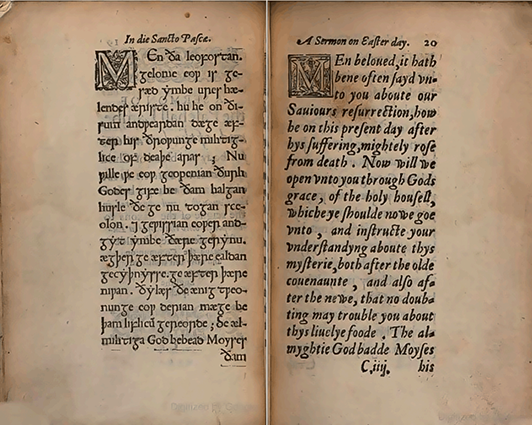 In die Sancto Pascæ.
MEn ða leofostan.
gelome eop is ge-
sæd ymbe ures hæ-
lendes æriste. hu he on ði-
sum andpeardan dæge æf-
ter his ðropunge mihtig-
lice of deaþe aras; Nu
pille pe eop geopenian ðurh
Godes gife be ðam halgan
husle ðe ge nu to gan sce-
olon. ⁊ gepissian eoper and-
gyt ymbe ðære gerynu.
ægþer ge æfter þære ealdan
gecyþnysse. ge æfter þære
nipan. ðy læs ðe ænig tpeo-
nunge eop derian mæge be
þam liflicū gereorde; Se æl-
mihtiga God bebead Moyses
ðam
A Sermon on Easter day. 20
MEn beloued, it hath
bene often sayd vn-
to you aboute our
Sauiours resurrection, how
he on this present day after
hys suffering, mightely rose
from death. Now will we
open vnto you through Gods
grace, of the holy housell,
which ye shoulde nowe goe
vnto, and instructe your
vnderstandyng aboute thys
mysterie, both after the olde
couenaunte, and also af-
ter the newe, that no doub-
ting may trouble you about
thys liuelye foode. The al-
myghtie God badde Moyses
C.iiij. his